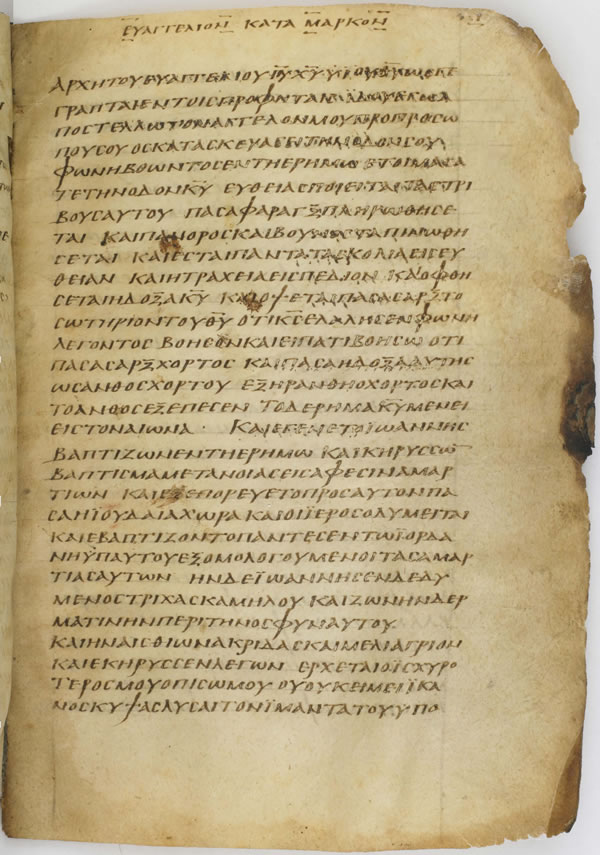 ΕΥΑΓΓΕΛΙΟΝ ΚΑΤΑ ΜΑΡΚΟΝ
ΑΡΧΗΤΟΥΕΥΑΓΓΕΛΙΟΥΙ̅Υ̅Χ̅Υ̅ΥΙΟΥΘ̅Υ̅ΩϹΓΕ
ΓΡΑΠΤΑΙΕΝΤΟΙϹΠΡΟΦΗΤΑΙϹΙΔΟΥΕΓΩΑ
ΠΟϹΤΕΛΛΩΤΟΝΑΓΓΕΛΟΝΜΟΥΠΡΟΠΡΟϹΩ
ΠΟΥϹΟΥΟϹΚΑΤΑϹΚΕΥΑϹΕΙΤΗΝΟΔΟΝϹΟΥ
ΦΩΝΗΒΟΩΝΤΟϹΕΝΤΗΕΡΗΜΩ ΕΤΟΙΜΑϹΑ
ΤΕΤΗΝΟΔΟΝΚ̅Υ̅ ΕΥΘΕΙΑϹΠΟΙΕΙΤΑΙΤΑϹΤΡΙ
ΒΟΥϹΑΥΤΟΥ ΠΑϹΑΦΑΡΑΓΞΠΛΗΡΩΘΗϹΕ
ΤΑΙ ΚΑΙΠΑΝΟΡΟϹΚΑΙΒΟΥΝΟϹΤΑΠΙΝΩΘΗ
ϹΕΤΑΙ ΚΑΙΕϹΤΑΙΠΑΝΤΑΤΑϹΚΟΛΙΑΕΙϹΕΥ
ΘΕΙΑΝ ΚΑΙΗΤΡΑΧΕΙΑΕΙϹΠΕΔΙΟΝ ΚΑΙΟΦΘΗ
ϹΕΤΑΙΗΔΟΞΑΚ̅Υ̅ ΚΑΙΟΨΕΤΑΙΠΑϹΑϹΑΡΞΤΟ
ϹΩΤΗΡΙΟΝΤΟΥΘ̅Υ̅ ΟΤΙΚ̅Ϲ̅ΕΛΑΛΗϹΕΝΦΩΝΗ
ΛΕΓΟΝΤΟϹΒΟΗϹΟΝΚΑΙΕΙΠΑΤΙΒΟΗϹΩ ΟΤΙ
ΠΑϹΑϹΑΡΞΧΟΡΤΟϹ ΚΑΙΠΑϹΑΗΔΟΞΑΑΥΤΗϹ
ΩϹΑΝΘΟϹΧΟΡΤΟΥ ΕΞΗΡΑΝΘΗΟΧΟΡΤΟϹΚΑΙ
ΤΟΑΝΘΟϹΕΞΕΠΕϹΕΝ ΤΟΔΕΡΗΜΑΚ̅Υ̅ΜΕΝΕΙ
ΕΙϹΤΟΝΑΙΩΝΑ· ΚΑΙΕΓΕΝΕΤΟΪΩΑΝΝΗϹ
ΒΑΠΤΙΖΩΝΕΝΤΗΕΡΗΜΩ ΚΑΙΚΗΡΥϹϹΩ̅
ΒΑΠΤΙϹΜΑΜΕΤΑΝΟΙΑϹΕΙϹΑΦΕϹΙΝΑΜΑΡ
ΤΙΩΝ ΚΑΙΕΞΕΠΟΡΕΥΕΤΟΠΡΟϹΑΥΤΟΝΠΑ
ϹΑΗΪΟΥΔΑΙΑΧΩΡΑ ΚΑΙΟΙΪΕΡΟϹΟΛΥΜΕΙΤΑΙ
ΚΑΙΕΒΑΠΤΙΖΟΝΤΟΠΑΝΤΕϹΕΝΤΩΪΟΡΔΑ
ΝΗΫΠΑΥΤΟΥΕΞΟΜΟΛΟΓΟΥΜΕΝΟΙΤΑϹΑΜΑΡ
ΤΙΑϹΑΥΤΩΝ ΗΝΔΕΪΩΑΝΝΗϹΕΝΔΕΔΥ
ΜΕΝΟϹΤΡΙΧΑϹΚΑΜΗΛΟΥ ΚΑΙΖΩΝΗΝΔΕΡ
ΜΑΤΙΝΗΝΠΕΡΙΤΗΝΟϹΦΥΝΑΥΤΟΥ
ΚΑΙΗΝΑΙϹΘΙΩΝΑΚΡΙΔΑϹΚΑΙΜΕΛΙΑΓΡΙΟΝ
ΚΑΙΕΚΗΡΥϹϹΕΝΛΕΓΩΝ ΕΡΧΕΤΑΙΟΪϹΧΥΡΟ
ΤΕΡΟϹΜΟΥΟΠΙϹΩΜΟΥ ΟΥΟΥΚΕΙΜΕΙΪΚΑ
ΝΟϹΚΥΨΑϹΛΥϹΑΙΤΟΝΪΜΑΝΤΑΤΟΥΥΠΟ